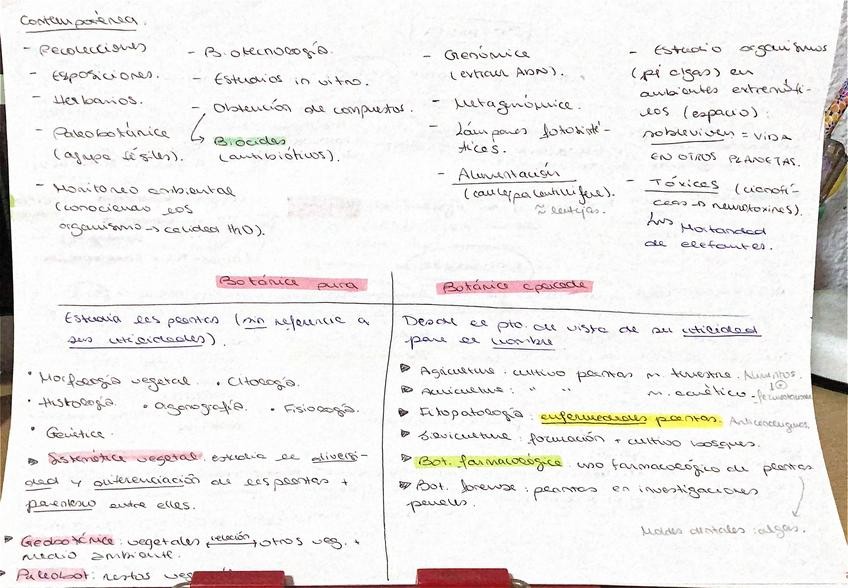 Contemporánea.
- Recolecciones
- Exposiciones.
- Herbarios.
- Paleobotánica
(agrupa fósiles).
- Monitoreo ambiental
(conociendo los
organismos → calidad H2O).
- Biotecnología.
- Estudios in vitro.
- Obtención de compuestos.
↳ Biocidas
(antibióticos).
- Genómica
(extraer ADN).
- Metagenómica.
- Lámparas fotosinté-
ticas.
- Alimentación
(caulerpa lentillifera).
≈ lentejas.
- Estudio organismos
(pej algas) en
ambientes extremófi-
los (espacio):
sobreviven = VIDA
EN OTROS PLANETAS.
- Tóxicas (cianofí-
ceas → neurotoxinas).
↳ Mortandad
de elefantes.
Botánica pura
Estudia las plantas (sin referencia a
sus utilidades).
· Morfología vegetal. · Citología.
· Histología. · Organografía. · Fisiología.
· Genética.
Sistemática vegetal: estudia la diversi-
dad y diferenciación de las plantas +
parentesco entre ellas.
Geobotánica: vegetales relación otros veg. +
medio ambiente.
Paleobot: restos
Botánica aplicada
Desde el pto. de vista de su utilidad
para el hombre.
Agricultura: cultivo plantas m. terrestre. Alimentos.
Acuicultura: " " m. acuático.
Fitopatología: enfermedades plantas.
Silvicultura: formación + cultivo bosques.
Bot. farmacológica: uso farmacológico de plantas
Bot. forense: plantas en investigaciones
penales.
Moldes dentales: algas.